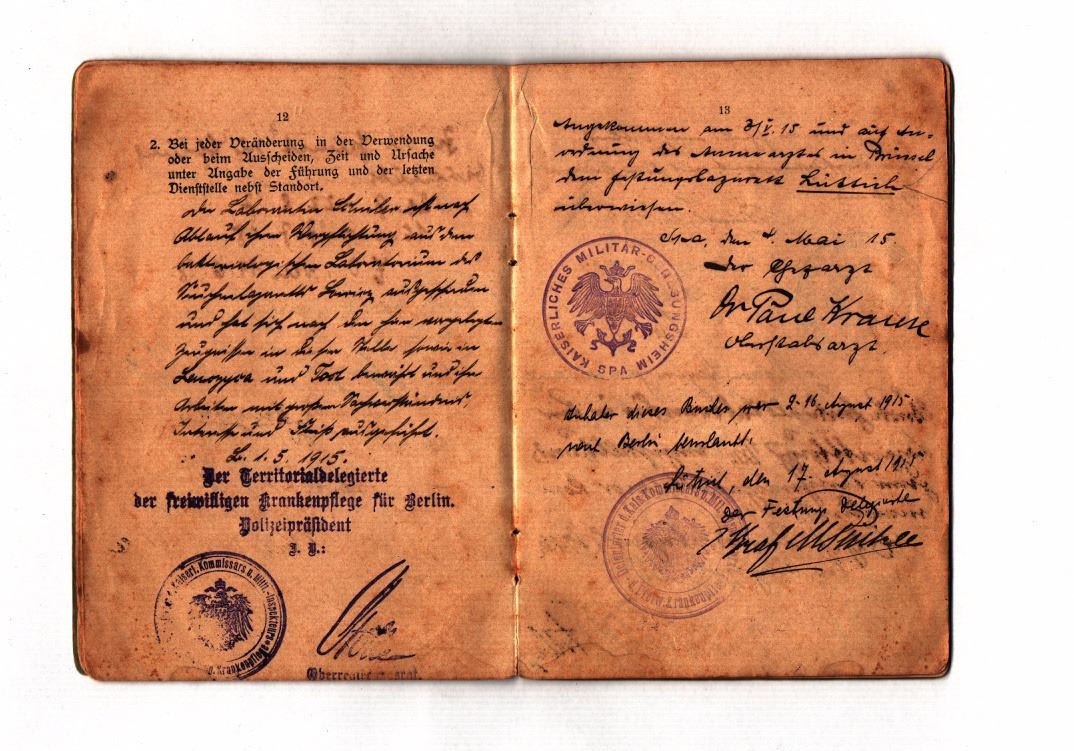 12
2. Bei jeder Veränderung in der Verwendung
oder beim Ausscheiden, Zeit und Ursache
unter Angabe der Führung und der letzten
Dienststelle nebst Standort.
Die Laborantin Schüler ist nach
Ablauf ihrer Verpflichtung aus dem
bakteriologischen Laboratorium des
ausgeschieden
und hat sich nach den hier vorgelegten
Zeugnissen in dieser Stelle sowie in
und bewährt und ihre
Arbeiten mit großem Sachverständnis,
und Fleiß ausgeführt.
B. 1. 5. 1915.
Der Territorialdelegierte
der freiwilligen Krankenpflege für Berlin.
Polizeipräsident
J. V.:
Kaiserl. Kommissars u. Milit.-Inspekteurs
Krankenpflege
Oberregierungsrat.
13
Angekommen am 3/V. 15 und auf An-
ordnung des Armeearztes in Brüssel
dem Festungslazarett Lüttich
überwiesen.
Spa, den 4. Mai 15.
Der Chefarzt
Dr Paul Krause
Oberstabsarzt.
KAISERLICHES MILITÄR-GENESUNGSHEIM
SPA
Inhaber dieses Buches war 2-16 August 1915
nach Berlin beurlaubt.
Lüttich, den 17. August 1915
der Festungs Delegierte
Graf